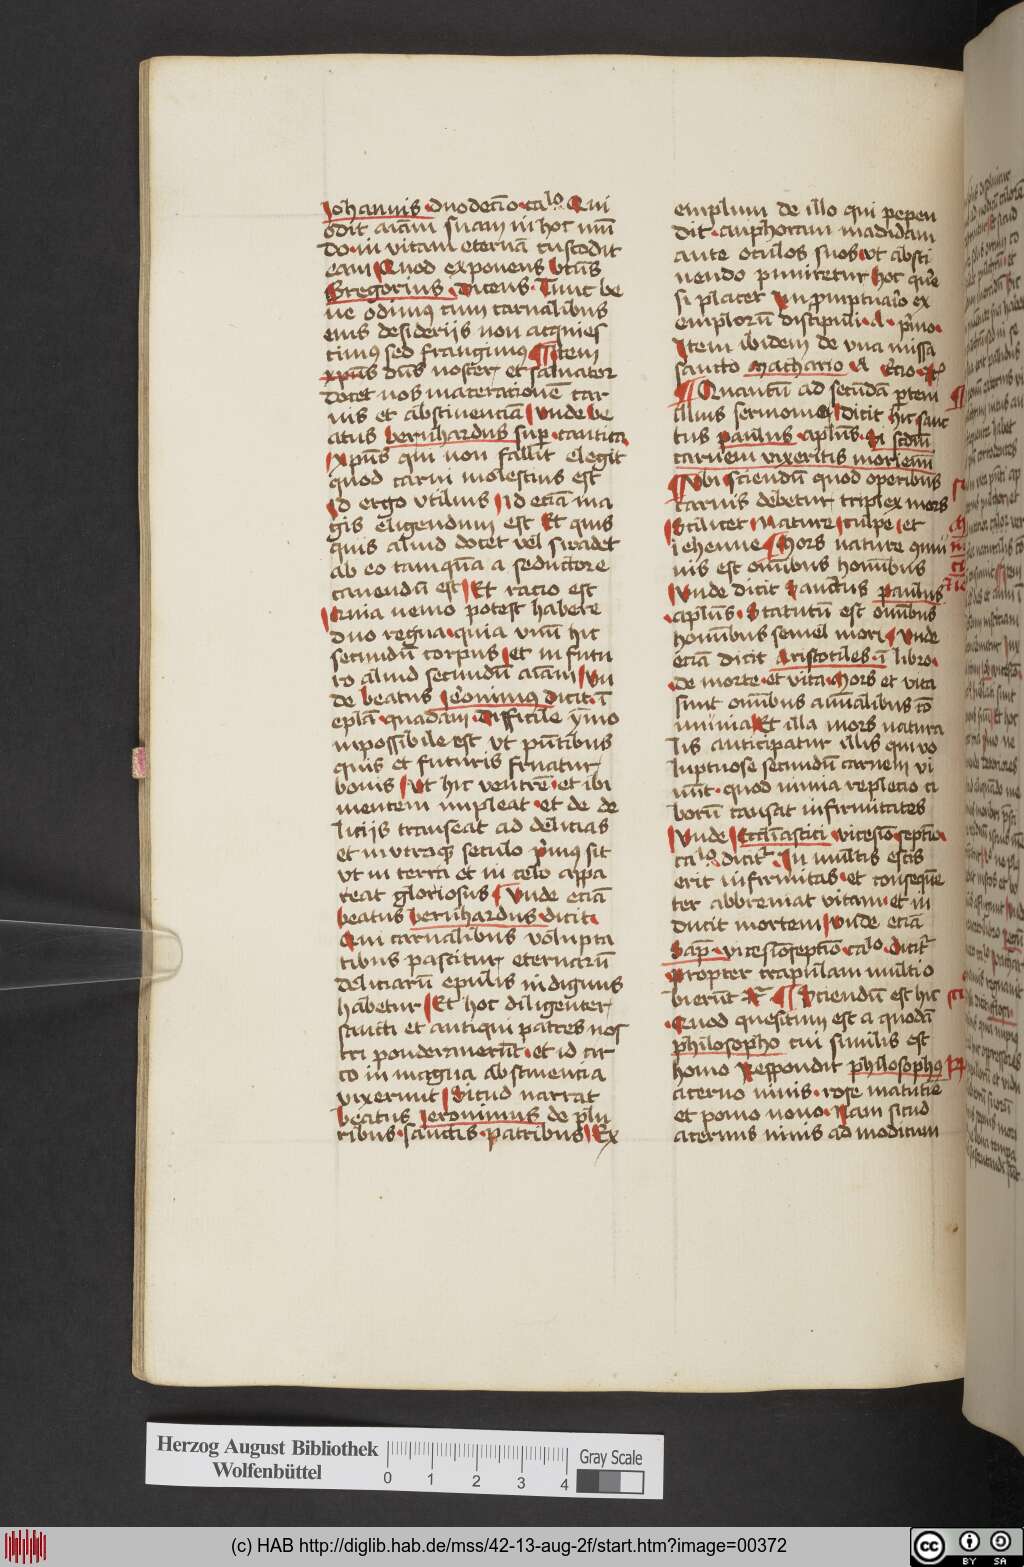 Johannis duodeci͞o ca͞lo Qui
odit ai͞am suam in hoc mu͞n
do in vitam eterna͞m custodit
eam Quod exponens bt͞us
Gregorius dicens Tunc be
ne odimus cum carnalibus
eius desiderijs non acquies
cimus sed frangimus Item
xp͞us d͞ns noster et salvator
docet nos macerationem car
nis et abstinencia͞m Unde be
atus bernhardus sup͞ cantica
xp͞us qui non fallit elegit
quod carni molestius est
Id ergo vtilius Id eciam ma
gis eligendum est Et quis
quis aliud docet vel suadet
ab eo tamqua͞m a seductore
cauendu͞m est Et racio est
Quia nemo potest habere
duo regna quia vnu͞m hic
secundu͞m corpus et in futu
ro aliud secundu͞m ai͞am Vn
de beatus Jeronimus dicit i͞
epl͞a quadam Difficile ymo
inpossibile est vt pn͞tibus
quis et futuris fruatur
bonis Vt hic ventre͞m et ibi
mentem impleat et de de
licijs transeat ad delicias
et in vtroq͞ seculo p͞mus sit
vt in terra et in celo appa
reat gloriosus Vnde ecia͞m
beatus bernhardus dicit
Qui carnalibus volupta
tibus pascitur eternaru͞m
deliciaru͞m epulis indignus
habetur Et hoc diligenter
sancti et antiqui patres nos
tri ponderaueru͞nt et id cir
co in magna abstinencia
vixerunt Sicud narrat
beatus Jeronimus de plu
ribus sanctis patribus Ex
emplum de illo qui pepen
dit amphoram madidam
ante oculos suos vt absti
nendo puniretur hoc que͞r
si placet in p͞mptuario ex
emploru͞m discipuli A p͞mo
Item ibidem de una missa
sancto Machario A t͞cio
Quantum ad secu͞ndam p͞tem
illius sermonis dicit hic sanc
tus paulus apl͞us Si scd͞m
carnem vixeritis moriemi͞ni
Vbi sciendum quod operibus
carnis debetur triplex mors
Scilicet Nature culpe et
iehenne Mors nature omni
nis est omnibus hominibus
Unde dicit Sanctus paulus
apl͞us Statutu͞m est omnibus
hominibus semel mori Vnde
ecia͞m dicit Aristotiles i͞ libro
de morte et vita Mors et vita
sunt omnibus animalibus co͞m
munia Et illa mors natura
lis anticipatur illis qui vo
luptuose secundu͞m carnem vi
uu͞nt quod nimia replecio ci
boru͞m causat infirmitates
Vnde Eccl͞iastici vicesi͞o septi͞o
ca͞lo dicitr In multis escis
erit infirmitas et conseque͞n
ter abbreuiat vitam et in
ducit mortem Vnde ecia͞m
Sap͞ vicesi͞oseptimo ca͞lo dicitr
Propter crapulam multi o
bieru͞nt Sciendu͞m est hic
Quod quesitum est a quoda͞m
philosopho cui similis est
homo Respondit philosophus
aterno niuis rose matutine
et pomo nouo Nam sicud
aternus niuis ad modicum
Herzog August Bibliothek
Wolfenbüttel
0 1 2 3 4
Gray Scale
(c) HAB http://diglib.hab.de/mss/42-13-aug-2f/start.htm?image=00372
cc BY SA